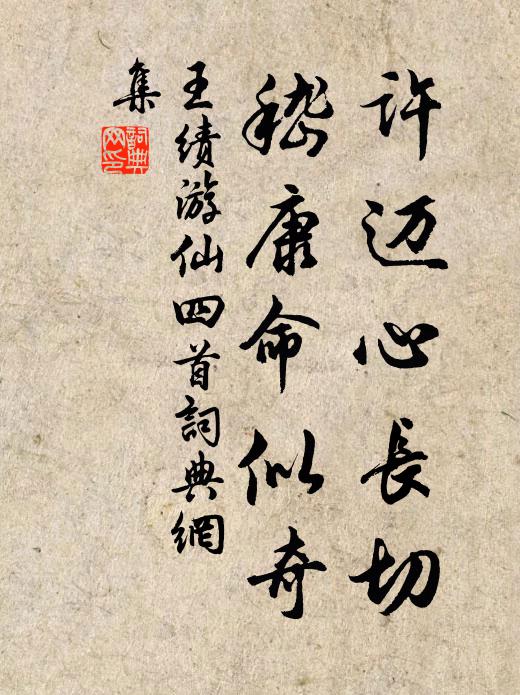 许迈心長切
嵇康命似奇
王績游仙四首詞典網
集
詞典
网印